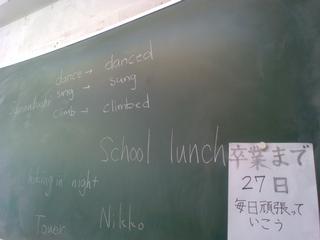 dance → danced
sing → sung
climb → climbed
School lunch
hiking in night
Tower Nikko
卒業まで
27日
毎日頑張って
いこう